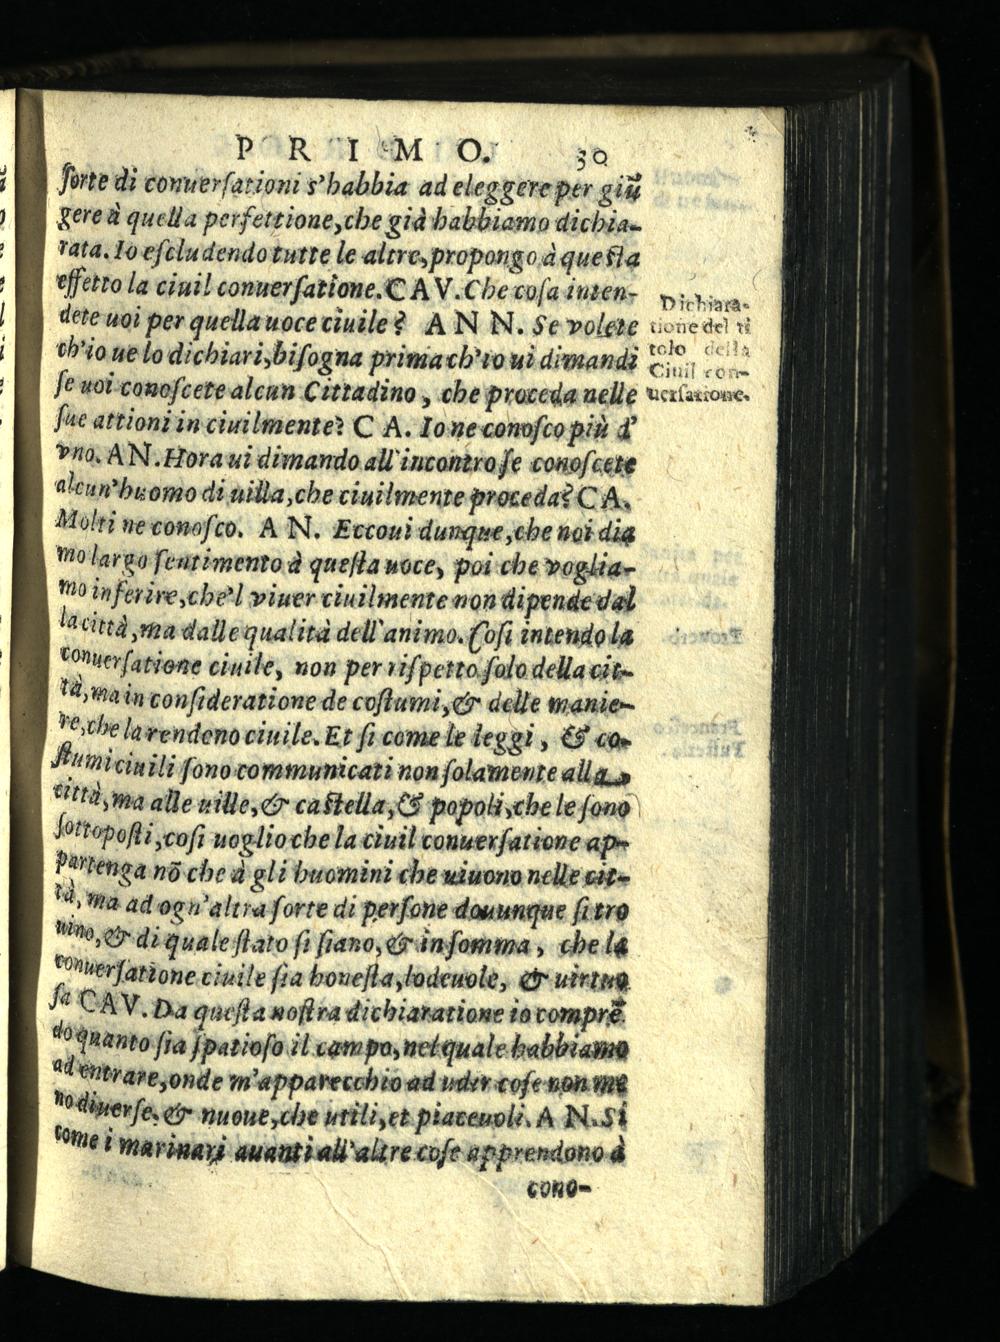 PRIMO. 30
ſorte di conuerſationi s'habbia ad eleggere per giũ
gere à quella perfettione, che già habbiamo dichia-
rata. Io eſcludendo tutte le altre, propongo à queſta
effetto la ciuil conuerſatione. CAV. Che coſa inten-
dete uoi per quella uoce ciuile? ANN. Se volete
ch'io ue lo dichiari, biſogna prima ch'io ui dimandi
ſe uoi conoſcete alcun Cittadino, che proceda nelle
ſue attioni inciuilmente? CA. Io ne conoſco più d'
vno. AN. Hora ui dimando all'incontro ſe conoſcete
alcun'huomo di uilla, che ciuilmente proceda? CA.
Molti ne conoſco. AN. Eccoui dunque, che noi dia
mo largo ſentimento à queſta uoce, poi che voglia-
mo inferire, che'l viuer ciuilmente non dipende dal
la città, ma dalle qualità dell'animo. Coſi intendo la
conuerſatione ciuile, non per riſpetto ſolo della cit-
tà, ma in conſideratione de coſtumi, & delle manie-
re, che la rendono ciuile. Et ſi come le leggi, & co-
ſtumi ciuili ſono communicati non ſolamente alla
città, ma alle uille, & caſtella, & popoli, che le ſono
ſottopoſti, coſi uoglio che la ciuil conuerſatione ap-
partenga nõ che à gli huomini che uiuono nelle cit-
tà, ma ad ogn'altra ſorte di perſone douunque ſi tro
uino, & di quale ſtato ſi ſiano, & in ſomma, che la
conuerſatione ciuile ſia honeſta, lodeuole, & uirtuo
ſa CAV. Da queſta noſtra dichiaratione io comprẽ
do quanto ſia ſpatioſo il campo, nel quale habbiamo
ad entrare, onde m'apparecchio ad udir coſe non me
no diuerſe, & nuoue, che utili, et piaceuoli. AN. Si
come i marinari auanti all'altre coſe apprendono à
cono-
Dichiara-
tione del ti
tolo della
Ciuil con-
uerſatione.